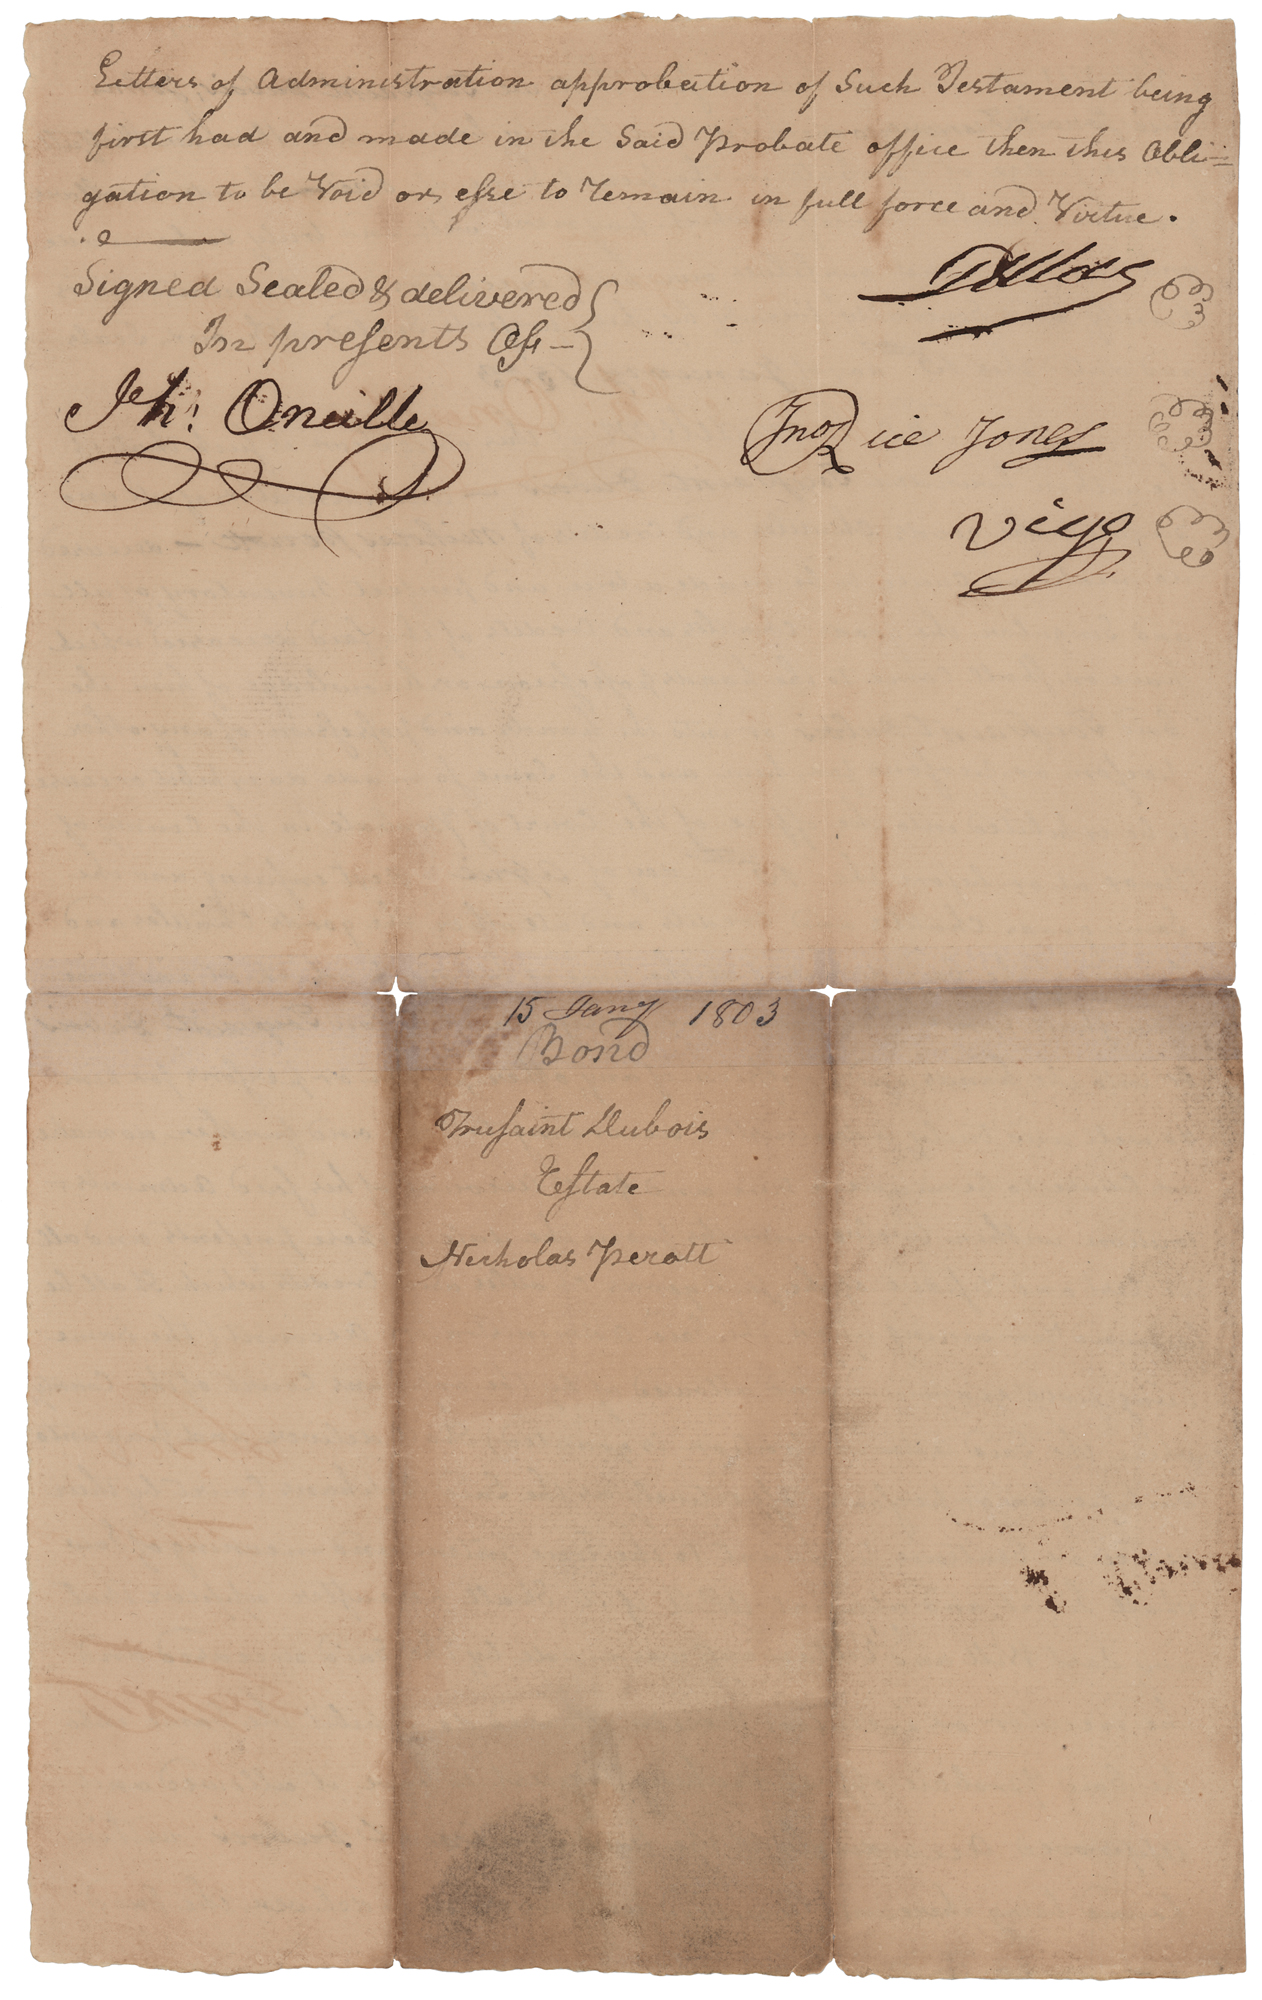 Letters of Administration approbation of Such Testament being
first had and made in the Said Probate office then this Obli=
gation to be Void or else to Remain in full force and Virtue.
Signed Sealed & delivered
In presents Off
Jh: Oneille
Jno Rice Jones
Vigo
15 Jany 1803
Bond
Trusaint Dubois
Estate
Nicholas Peratt